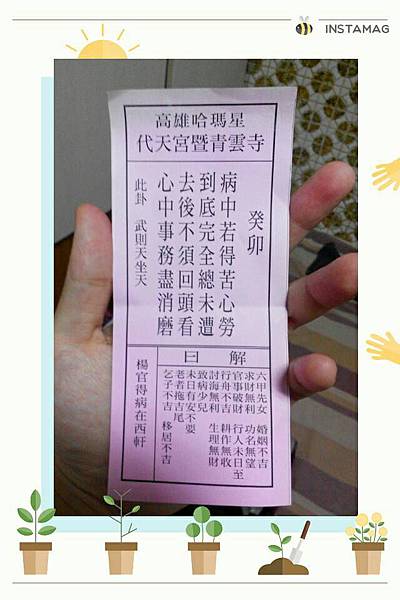 INSTAMAG
高雄哈瑪星
代天宮暨青雲寺
癸卯
病中若得苦心勞
到底完全總未遭
去後不須回頭看
心中事務盡消磨
此卦 武則天坐天
解曰
六甲先女 婚姻不吉
求財無利 功名無望
官事破財 行人未日至
行舟不吉 耕作無收
討海無利 生理無財
致病少兒
未日有安不要
老者拖吉尾
乞子不吉 移居不吉
楊官得病在西軒